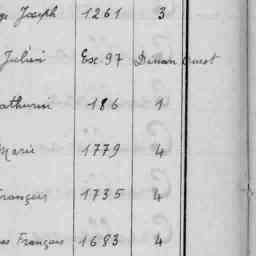 Joseph 1261 3
Julien Exc. 97 Dinan Ouest
athurin 186 1
Marie 1779 4
rançois 1735 4
François 1683 4